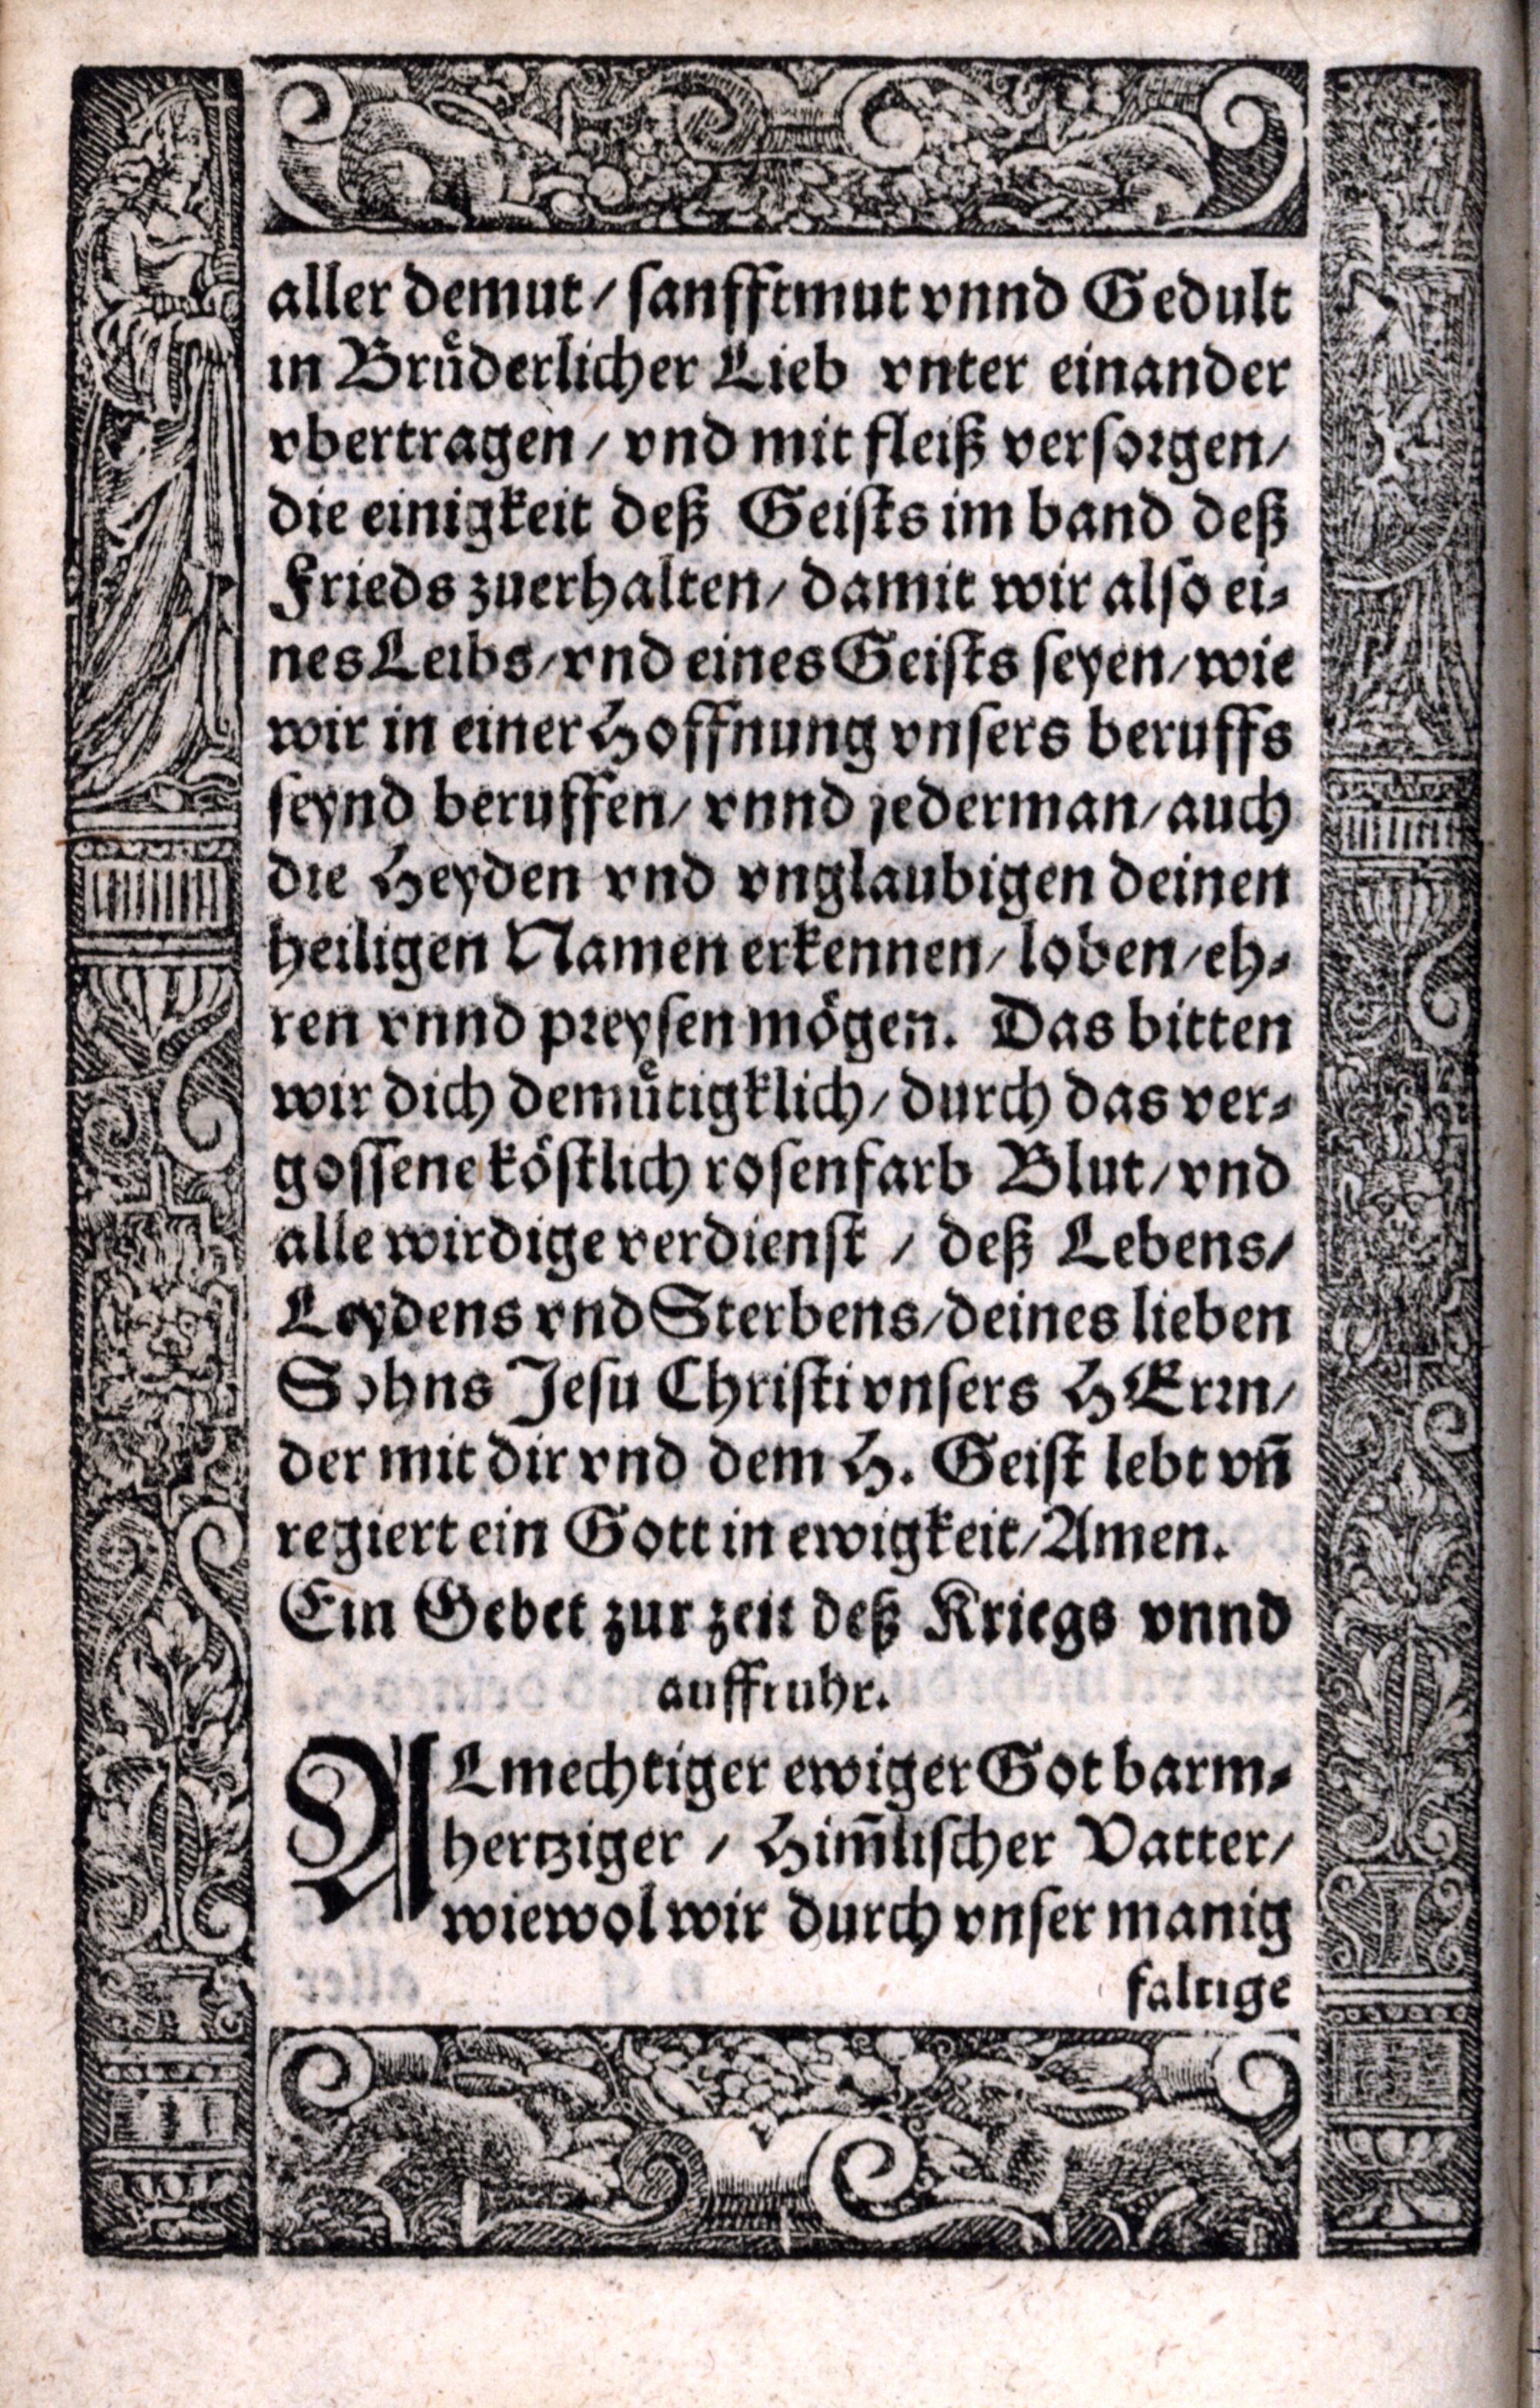 aller demut / sanfftmut vnnd Gedult
in Bruͤderlicher Lieb vnter einander
vbertragen / vnd mit fleiß versorgen/
die einigkeit deß Geists im band deß
Frieds zuerhalten/ damit wir also ei⸗
nes Leibs/vnd eines Geists seyen/wie
wir in einer Hoffnung vnsers beruffs
seynd beruffen/ vnnd jederman/auch
die Heyden vnd vnglaubigen deinen
heiligen Namen erkennen/ loben/eh⸗
ren vnnd preysen moͤgen. Das bitten
wir dich demuͤtigklich/ durch das ver⸗
gossene koͤstlich rosenfarb Blut/ vnd
alle wirdige verdienst / deß Lebens/
Leydens vnd Sterbens/deines lieben
Sohns Jesu Christi vnsers HErrn/
der mit dir vnd dem H. Geist lebt vn̄
regiert ein Gott in ewigkeit/Amen.
Ein Gebet zur zeit deß Kriegs vnnd
auffruhr.
ALmechtiger ewiger Got barm⸗
hertziger / Him̄lischer Vatter/
wiewol wir durch vnser manig
faltige